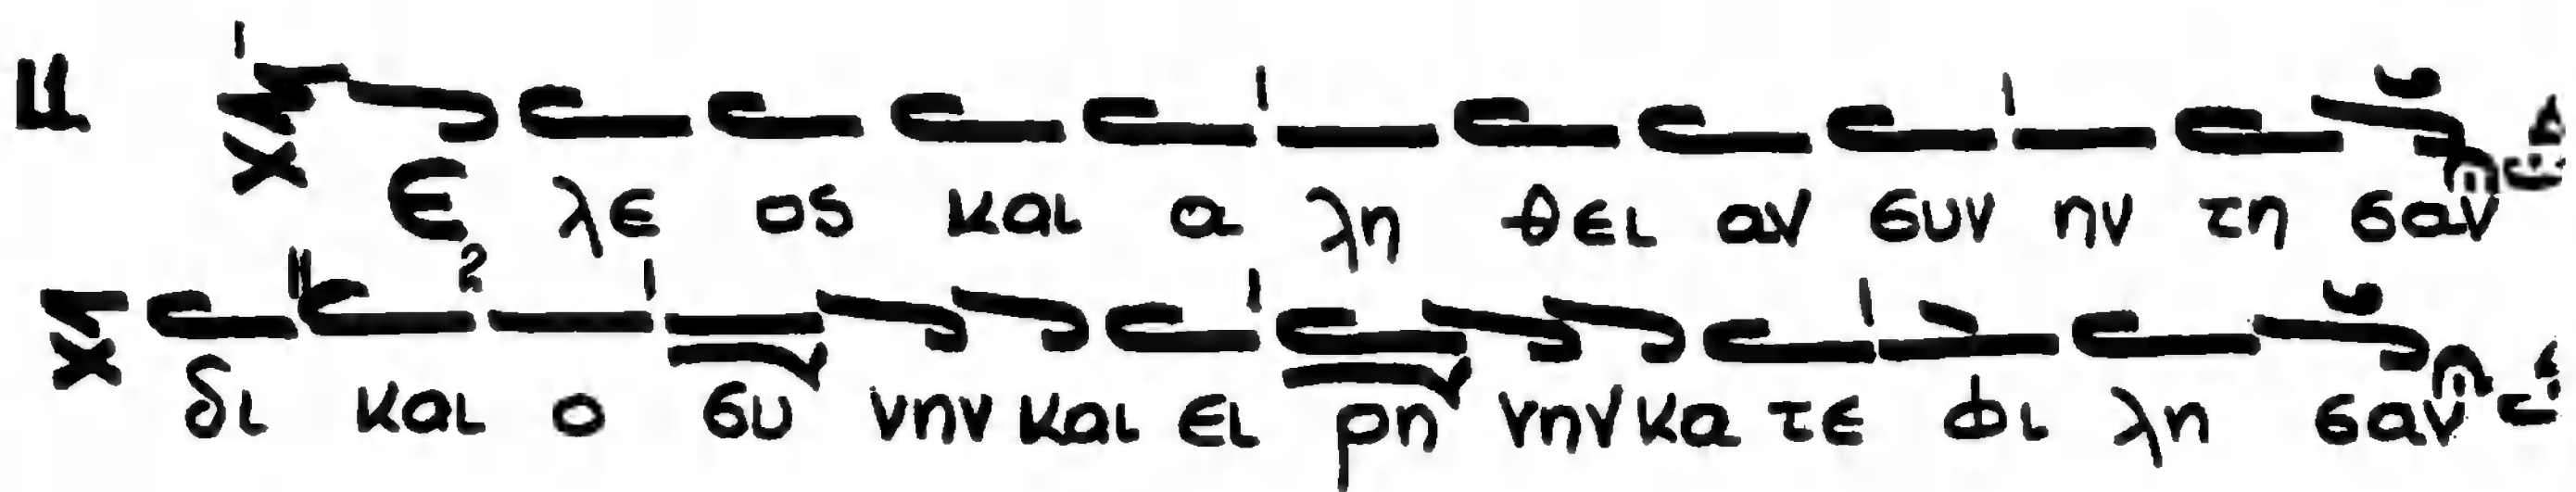 Ε λε ος και α λη θει αν συν ην τη σαν
δι και ο συ νην και ει ρη νην κα τε φι λη σαν